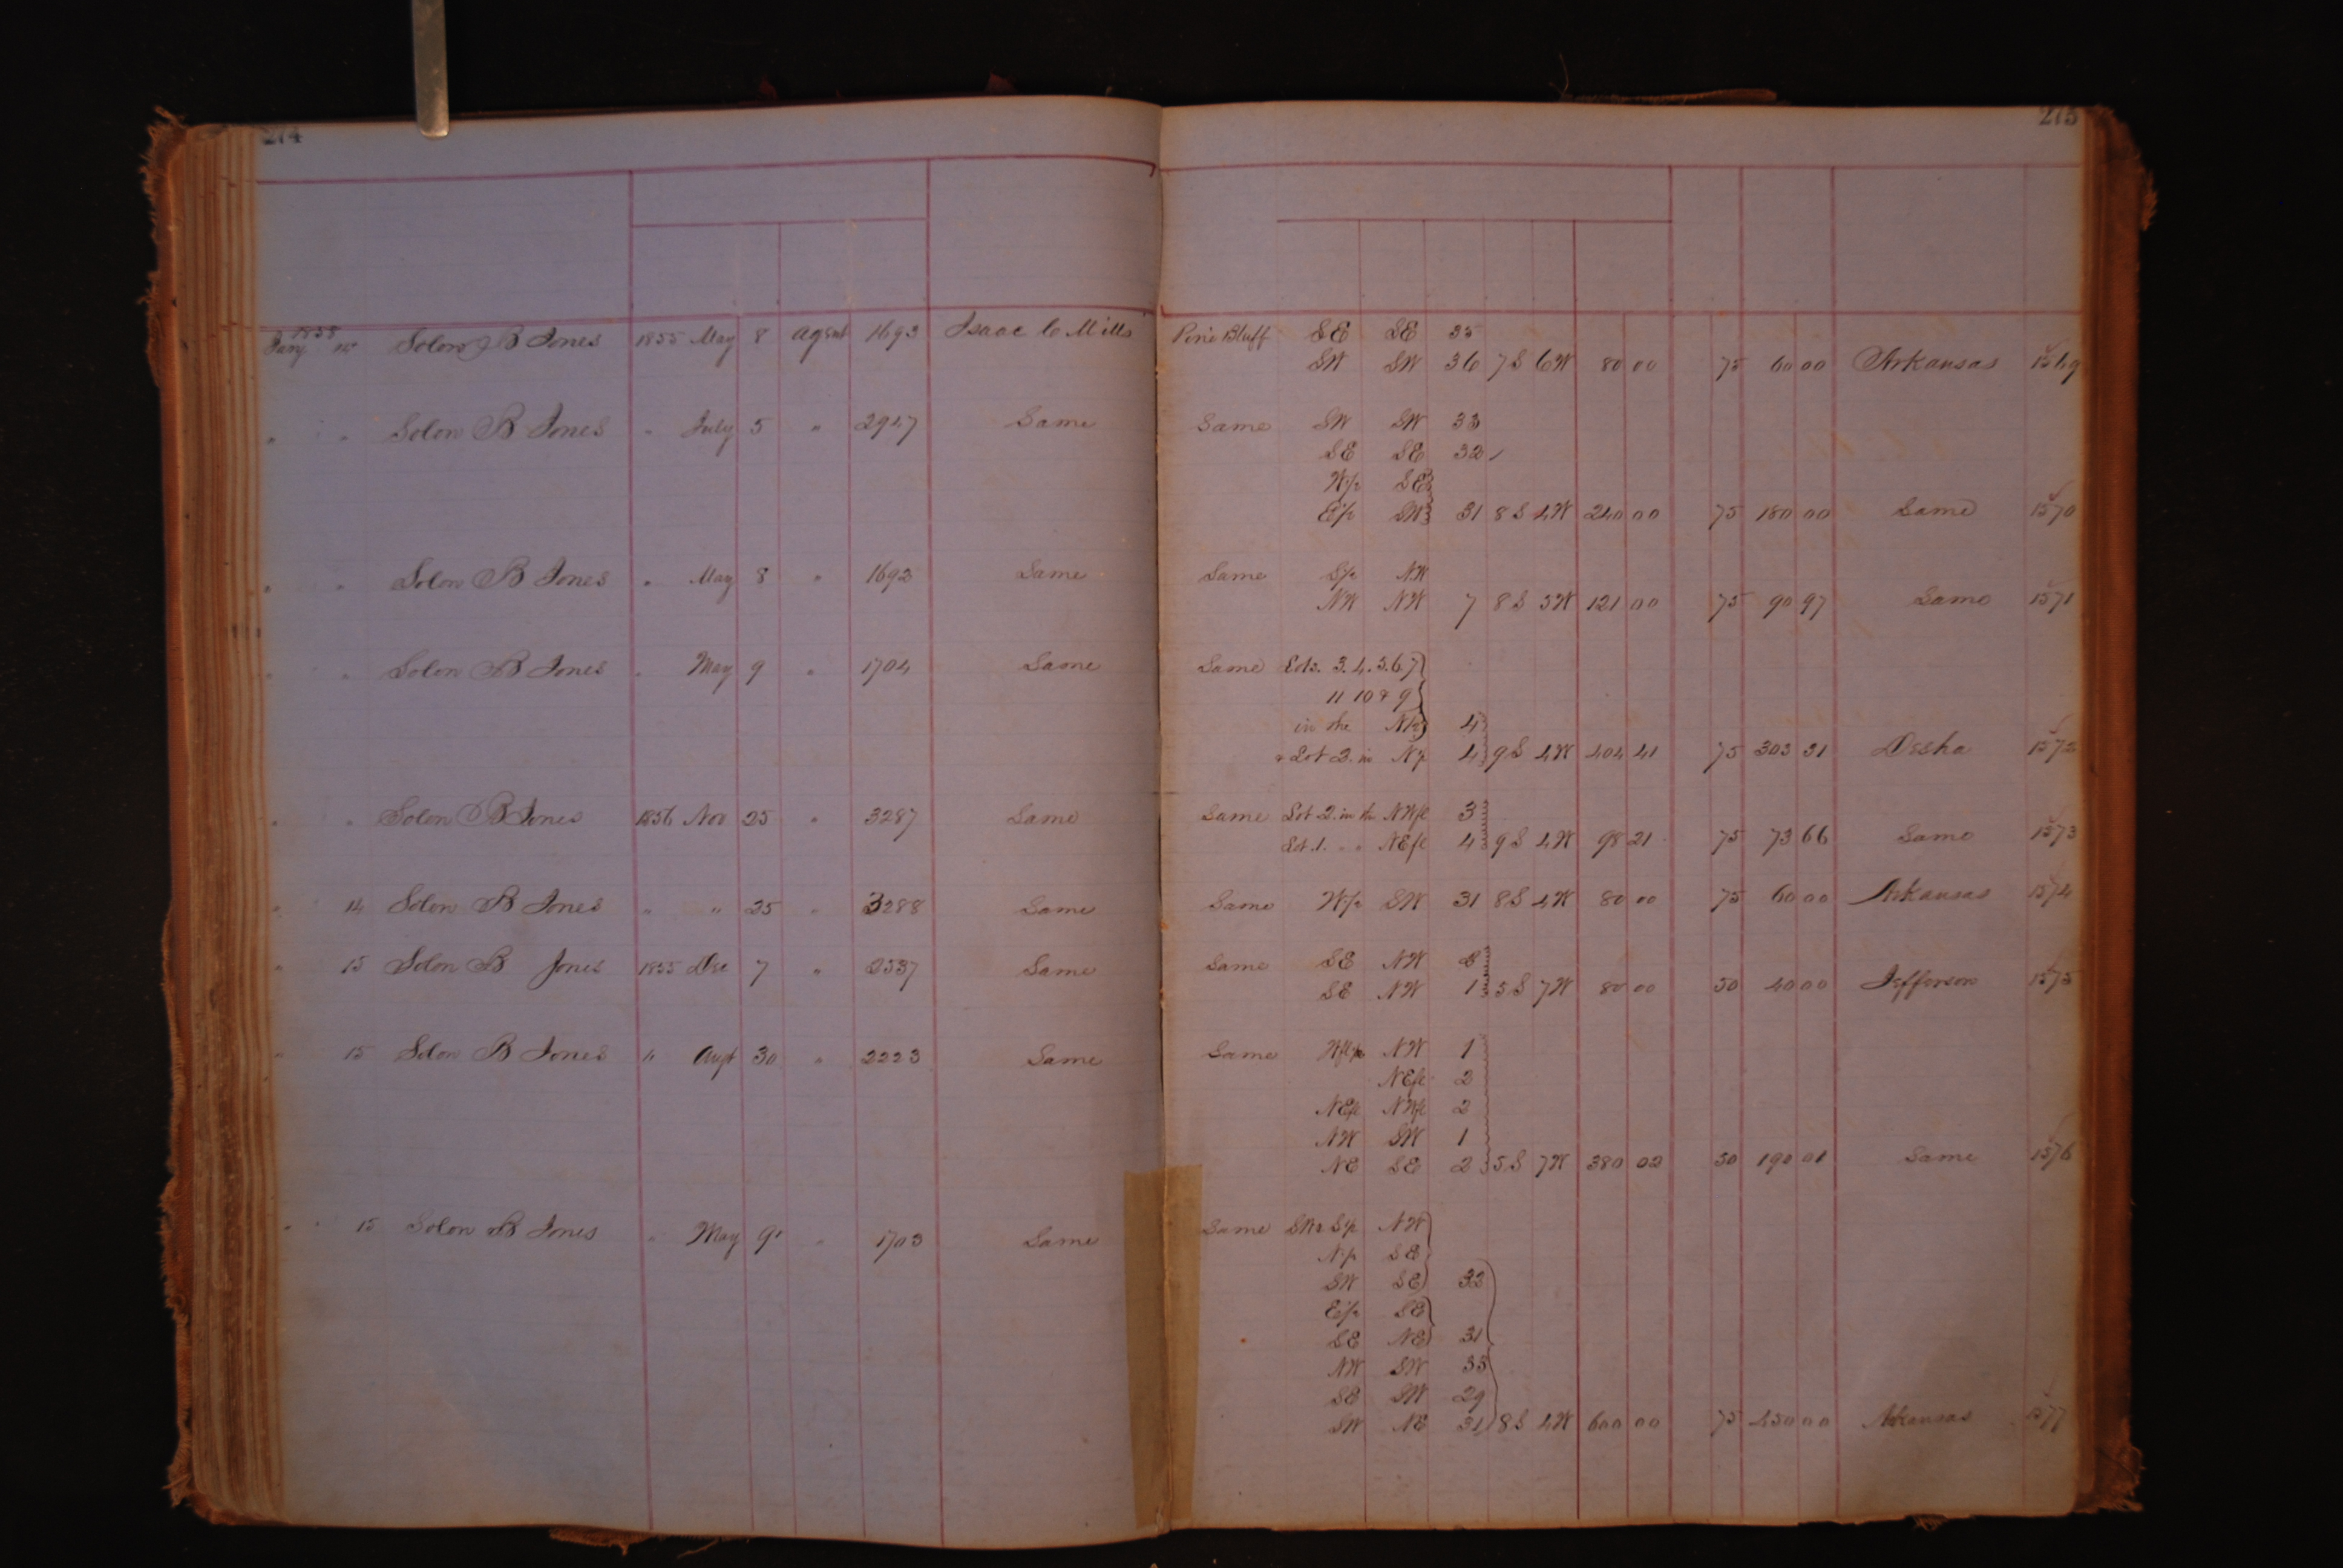 274
275
1858
Jany 14 Solon B Jones 1855 May 8 agent 1693 Isaac C Mills Pine Bluff SE SE 35
SW SW 36 7S 6W 80 00 75 60 00 Arkansas 1569
" " Solon B Jones " July 5 " 2947 Same Same SW SW 33
SE SE 32
W½ SE
E½ SW 31 8S 4W 240 00 75 180 00 Same 1570
" " Solon B Jones " May 8 " 1692 Same Same S½ NW
NW NW 7 8S 5W 121 00 75 90 97 Same 1571
" " Solon B Jones " May 9 " 1704 Same Same Lots. 3.4.5.6.7
11 10 & 9
in the N½ 4
& Lot 2. in N½ 4 9S 4W 404 41 75 303 31 Desha 1572
" " Solon B Jones 1856 Nov 25 " 3287 Same Same Lot 2. in the NWfl 3
Lot .1. " " NEfl 4 9S 4W 98 21 75 73 66 Same 1573
" 14 Solon B Jones " " 25 " 3288 Same Same W½ SW 31 8S 4W 80 00 75 60 00 Arkansas 1574
" 15 Solon B Jones 1855 Dec 7 " 2537 Same Same SE NW
SE NW 1 5S 7W 80 00 50 40 00 Jefferson 1575
" 15 Solon B Jones " Augt 30 " 2223 Same Same NW 1
NEfl 2
NEfl NWfl 2
NW SW 1
NE SE 2 5S 7W 380 02 50 190 01 Same 1576
" " 15 Solon B Jones " May 9 " 1703 Same Same SW & S½ NW
N½ SE
SW SE 32
E½ SE
SE NE 31
NW SW 33
SE SW 29
SW NE 31 8S 4W 600 00 75 450 00 Arkansas 1577